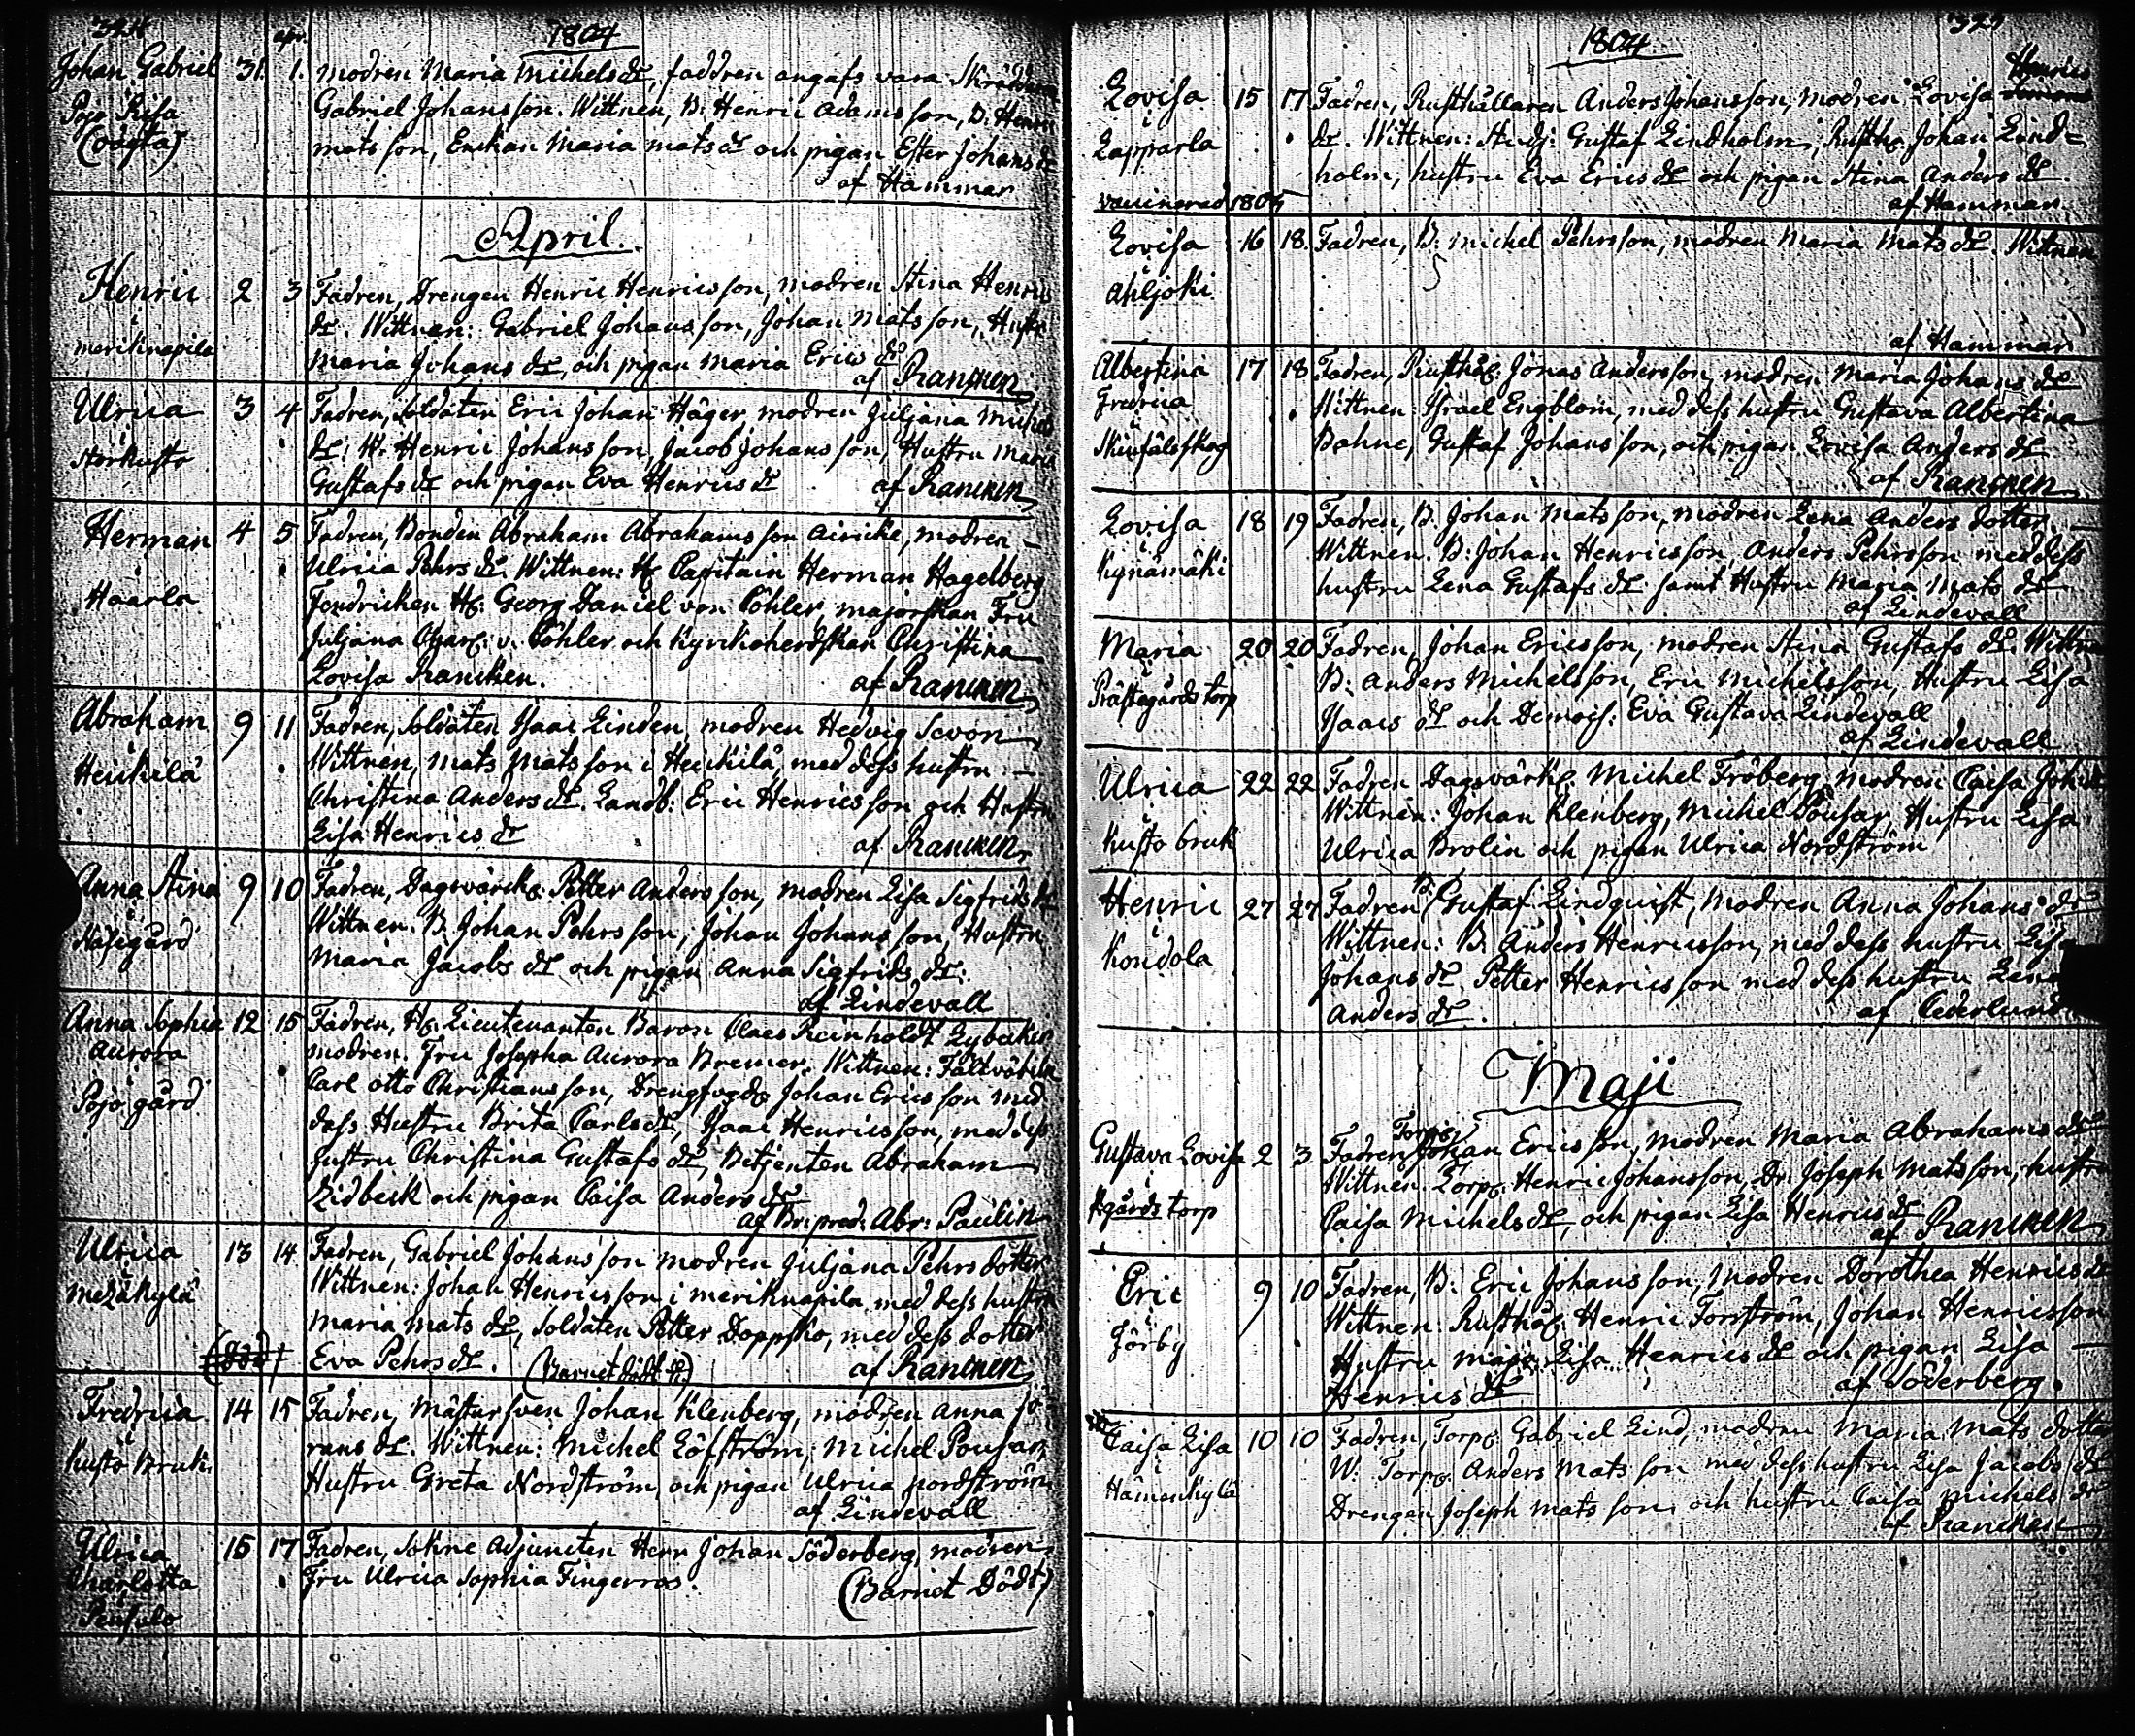 1804
apr.
Johan Gabriel 31. 1. Modren Maria Michels dr, faddren angafs vara Skräddaren
Pojo Prisa Gabriel Johansson. Wittnen, B: Henric Adamsson, D. Henric
(oägta) Matsson, Enckan Maria Mats dr och pigan Ester Johans dr
af Hammar
April.
Henric 2 3 Fadren, Drengen Henric Henricsson, modren Stina Henrics
i dr. Wittnen: Gabriel Johansson, Johan Matsson, Hustr
meriknapila Maria Johans dr, och pigan Maria Erics dr
af Rancken
Ulrica 3 4 Fadren, Soldaten Eric Johan Häger modren Juljana Michels
i dr: W. Henric Johansson, Jacob Johansson, Hustru Maria
Storkusto Gustafs dr och pigan Eva Henrics dr af Rancken
Herman 4 5 Fadren, Bonden Abraham Abrahamsson Airicke, modren
i Ulrica Pehrs dr. Wittnen: Hr Capitain Herman Hagelberg
Haarla Fendricken Hr: Georg Daniel von Cöhler, majorskan Fru
Juljana Char: v. Cöhler och Kyrckoherdskan Christina
Lovisa Rancken. af Rancken
Abraham 9 11 Fadren, Soldaten Isaac Linden, modren Hedvig Sevon
Heickilä Wittnen, Mats Matsson i Heickilä, med dess hustru
Christina Anders dr. Landb: Eric Henricsson och Hustru
Lisa Henrics dr af Rancken
Anna Stina 9 10 Fadren, Dagsvärck: Petter Andersson, modren Lisa Sigfrids dr
i Wittnen. B. Johan Pehrsson, Johan Johansson, Hustru
Näsegård Maria Jacobs dr och pigan Anna Sigfrids dr.
af Lindevall
Anna Sophia 12 15 Fadren, Hr Lieutenanten Baron Claes Reinholdt Lybecker
Aurora modren. Fru Josepha Aurora Bremer. Wittnen: Fältväbeln
i Carl Otto Christiansson, Drengfogd: Johan Ericsson med
Pojo gård dess Hustru Brita Carls dr, Isaac Henricsson, med dess
hustru Christina Gustafs dr, Betjenten Abraham
Lidbeck och pigan Caisa Anders dr
af Br: pred: Abr: Paulin
Ulrica 13 14 Fadren, Gabriel Johansson modren Juljana Pehrs dotter
i Wittnen: Johan Henricsson i meriknapila med dess hustru
Mezäkylä Maria Mats dr, Soldaten Petter Doppsko, med dess dotter
(död) Eva Pehrs dr. (Barnet dödt) af Rancken
Fredrica 14 15 Fadren, Mästersven Johan Klenberg, modren Anna Jo
i rans dr. Wittnen: Michel Löfström, Michel Pousar,
Kusto Bruk. Hustru Greta Nordström, och pigan Ulrica Nordström
af Lindevall
Ulrica 15 17 Fadren, Sokne Adjuncten Herr Johan Söderberg, modren
Charlotta Fru Ulrica Sophia Fingerroos. (Barnet Dödt)
1804
Lovisa 15 17 Fadren, Rusthållaren Anders Johansson, modren Lovisa Henrics
i dr. Wittnen: Studj: Gustaf Lindholm, Rusth: Johan Lind=
Lapparla holm, hustru Eva Erics dr och pigan Stina Anders dr.
vaccinerad 1805 af Hammar
Lovisa 16 18. Fadren, B: Michel Pehrsson, modren Maria Mats dr. Wittnen
i
Ahljoki
af Hammar
Albertina 17 18 Fadren, Rusthål: Jonas Andersson, modren Maria Johans dr
Fredrica Wittnen: Israel Engblom, med dess hustru Gustava Albertina
i Bahne, Gustaf Johansson, och pigan Lovisa Anders dr
af Rancken
Lovisa 18 19 Fadren, B. Johan Matsson, modren Lena Anders dotter
i Wittnen. B: Johan Henricsson, Anders Pehrsson med dess
Kynämäki hustru Lena Gustafs dr samt Hustru Maria Mats dr
af Lindevall
Maria 20 20 Fadren, Johan Ericsson, modren Stina Gustafs dr. Wittnen
i B: Anders Michelsson, Eric Michelsson, Hustru Lisa
Prästegårds torp Isaacs dr och Demois: Eva Gustava Lindevall
af Lindevall
Ulrica 22 22 Fadren Dagsvärk: Michel Fröberg, modren Caisa Johans
i Wittnen: Johan Klenberg, Michel Pousar, Hustru Lisa
Kusto bruk Ulrica Brolin och pigan Ulrica Nordström
Henric 27 27 Fadren B. Gustaf Lindquist, Modren Anna Johans dr
i Wittnen: B. Anders Henricsson, med dess hustru Lisa
Kondola Johans dr Petter Henricsson med dess hustru Lena
Anders dr. af Cederlund
Maji
Gustava Lovisa 2 3 Fadren Torp: Johan Ericsson, modren Maria Abrahams dr
i Wittnen. Torp: Henric Johansson, Dr. Joseph Matsson, hustru
Kgårds torp Caisa Michels dr, och pigan Lisa Henrics dr
af Rancken
Eric 9 10 Fadren, B: Eric Johansson, modren Dorothea Henrics dr
i Wittnen: Rusthål: Henric Forsström, Johan Henricsson
Jörby Hustru Maja Lisa Henrics dr och pigan Lisa
Henrics dr af Söderberg.
Caisa Lisa 10 10 Fadren, Torp: Gabriel Lind, modren Maria Mats dotter
i W: Torp: Anders Matsson med dess hustru Lisa Jacobs dr
Hämenkylä Drengen Joseph Matsson och hustru Caisa Michels dr
af Rancken